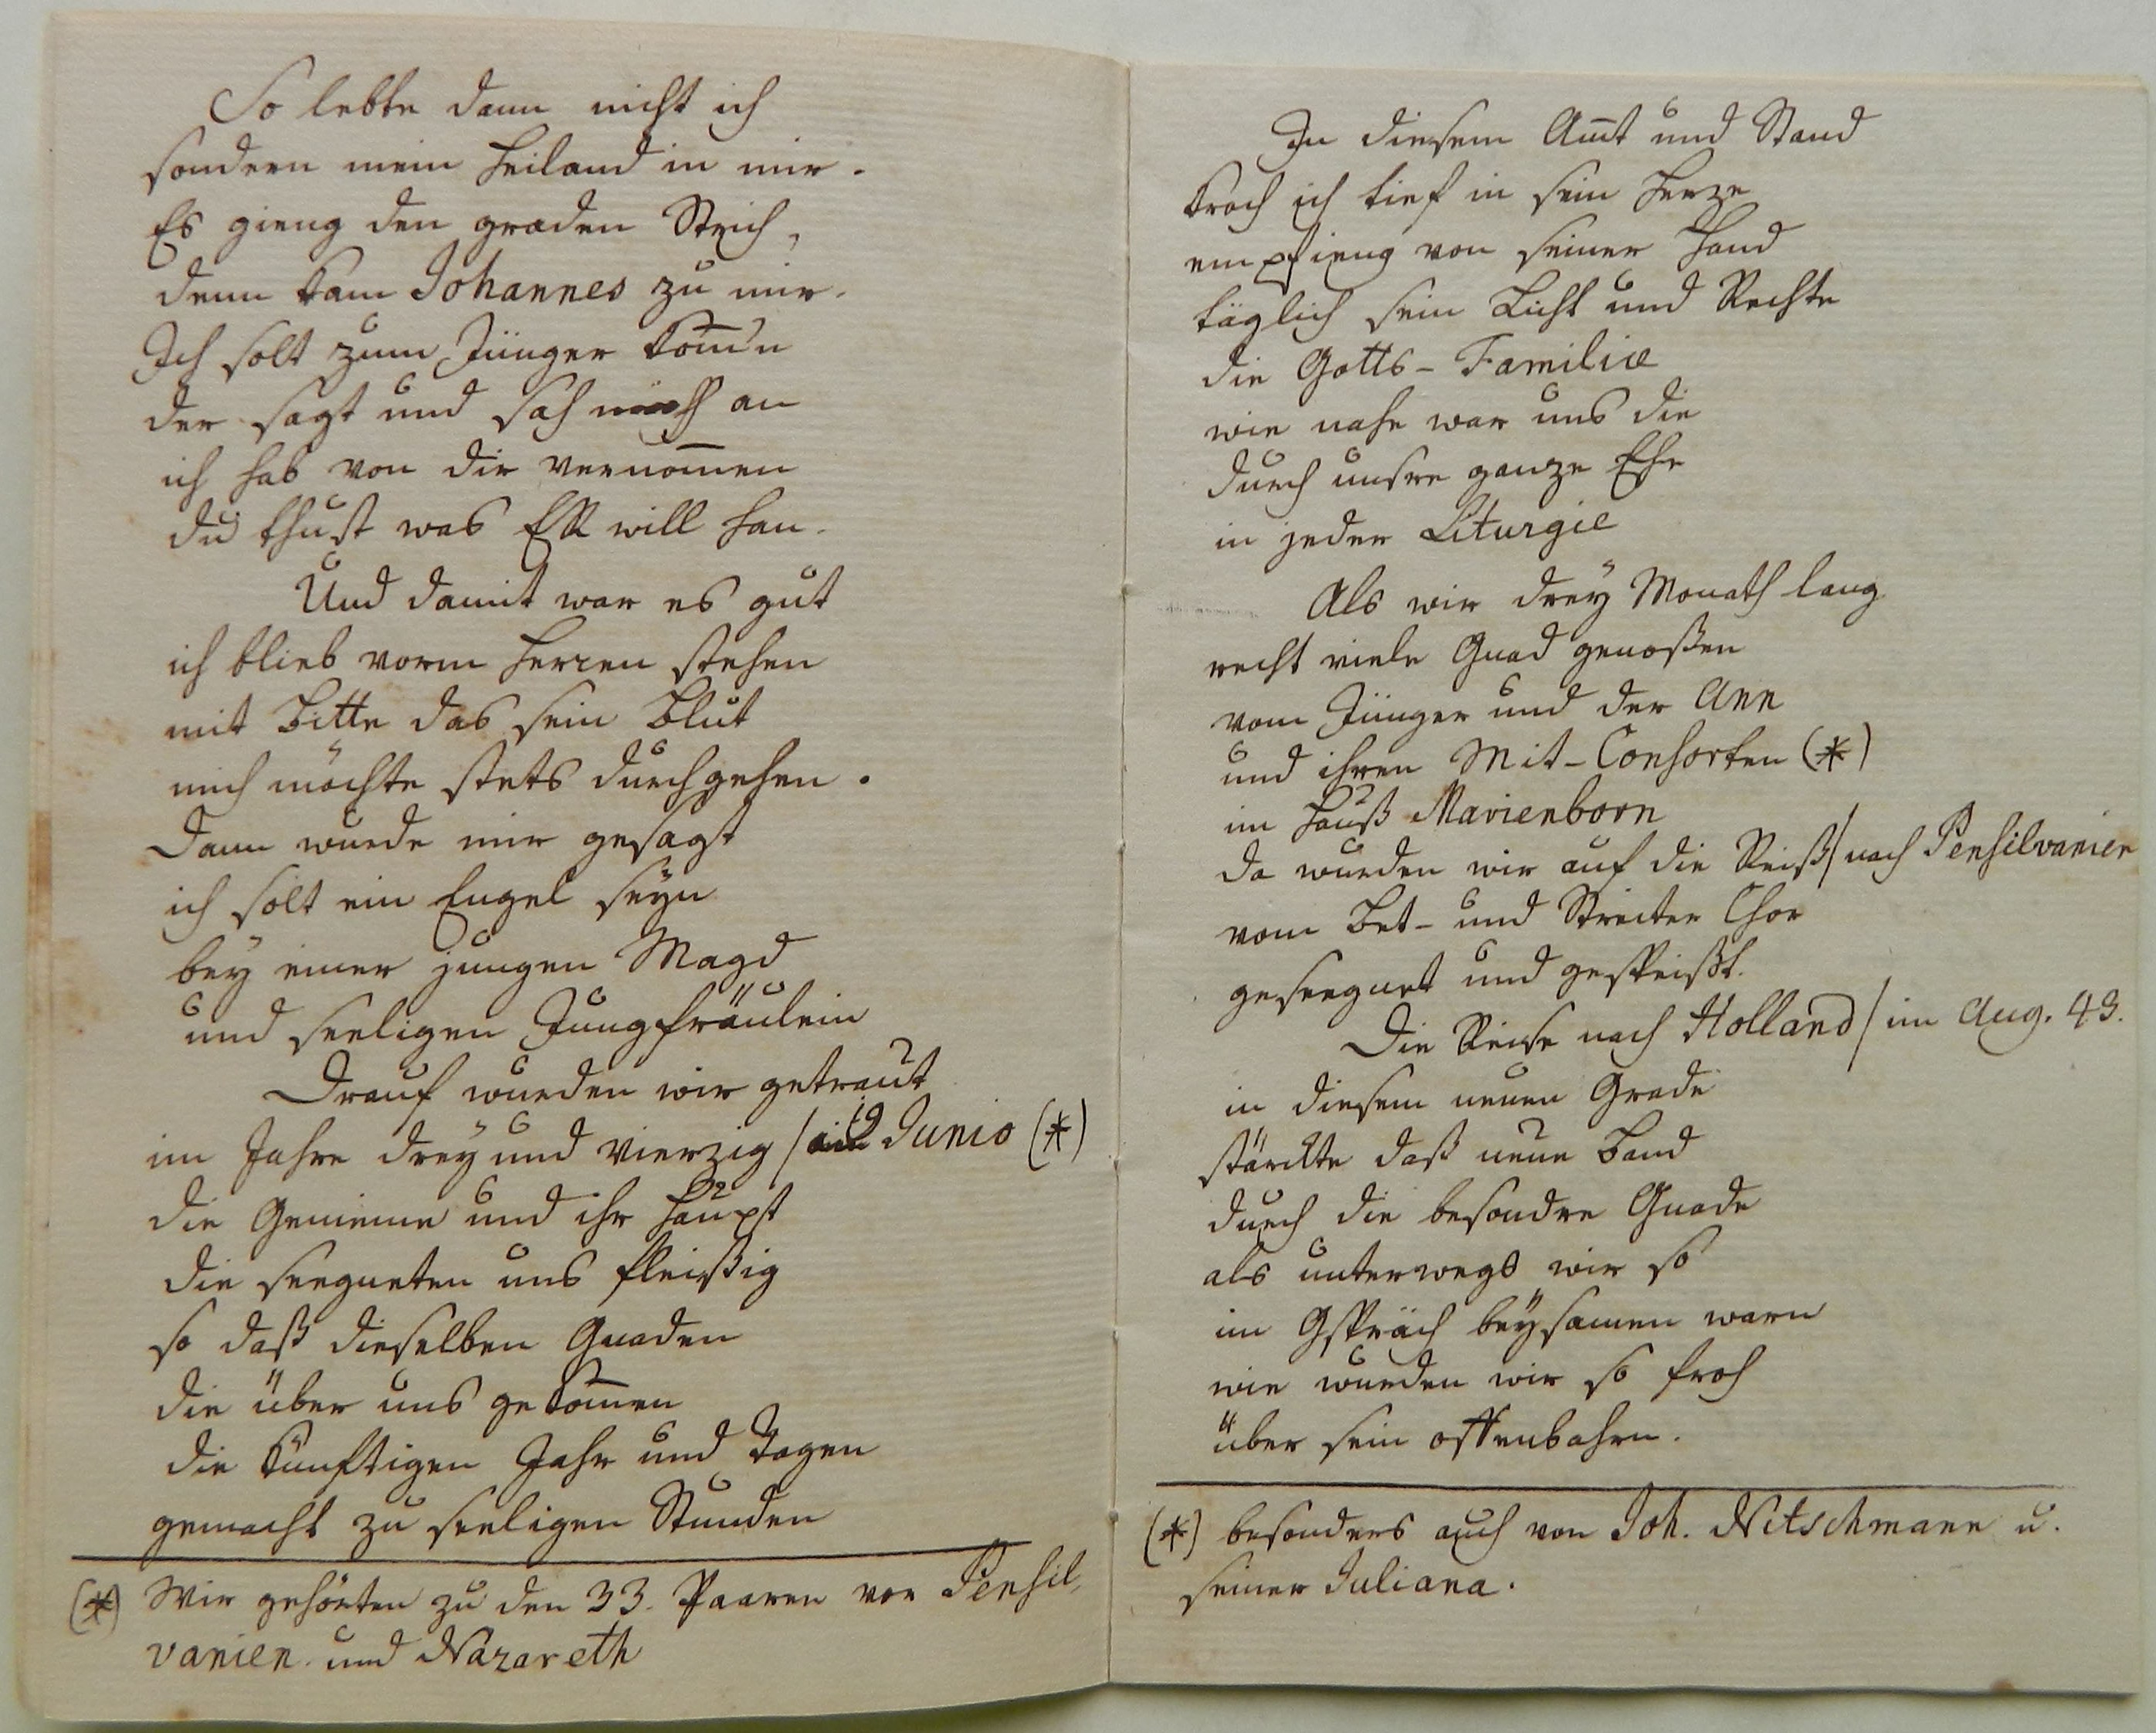 So lebte dann nicht ich
sondern mein Heiland in mir.
Es gieng den graden Strich,
denn kam Johannes zu mir.
Ich solt zum Jünger kom̄'n
der sagt und sah mich an
ich hab von dir vernom̄en
du thust was ER will han.
Und damit war es gut
ich blieb vorm Herren stehen
mit Bitte das sein Blut
mich möchte stets durchgehen.
Dann wurde mir gesagt
ich solt ein Engel seyn
bey einer jungen Magd
und seeligen Jungfräulein
Drauf wurden wir getraut
im Jahre drey und vierzig / Junio (*)
die Gemeine und ihr Haupt
die seegneten uns fleißig
so daß dieselben Gnaden
die über uns gekom̄en
die künftigen Jahr und Tagen
gemacht zu seeligen Stunden
(*) Wir gehörten zu den 33. Paaren von Pensil,
vanien und Nazareth
In diesem Am̄t und Stand
kroch ich tief in sein Herze
empfieng von seiner Hand
täglich sein Licht und Rechte
die Gotts-Familie
wie nahe war uns die
durch unsre ganze Ehe
in jeder Liturgie
Als wir drey Monath lang
recht viele Gnad genoßen
vom Jünger und der Ann
und ihren Mit-Consorten (*)
im Hauß Marienborn
da wurden wir auf die Reiß / nach Pensilvanien
vom Bet- und Streiter Chor
geseegnet und gespeißt.
Die Reise nach Holland / im Aug. 43.
in diesem neuen Grade
stärckte daß neue Band
durch die besondre Gnade
als unterwegs wir so
im Gspräch beysamen warn
wie wurden wir so froh
über sein offenbahrn.
(*) besonders auch von Joh. Nitschmann u.
seiner Juliana.